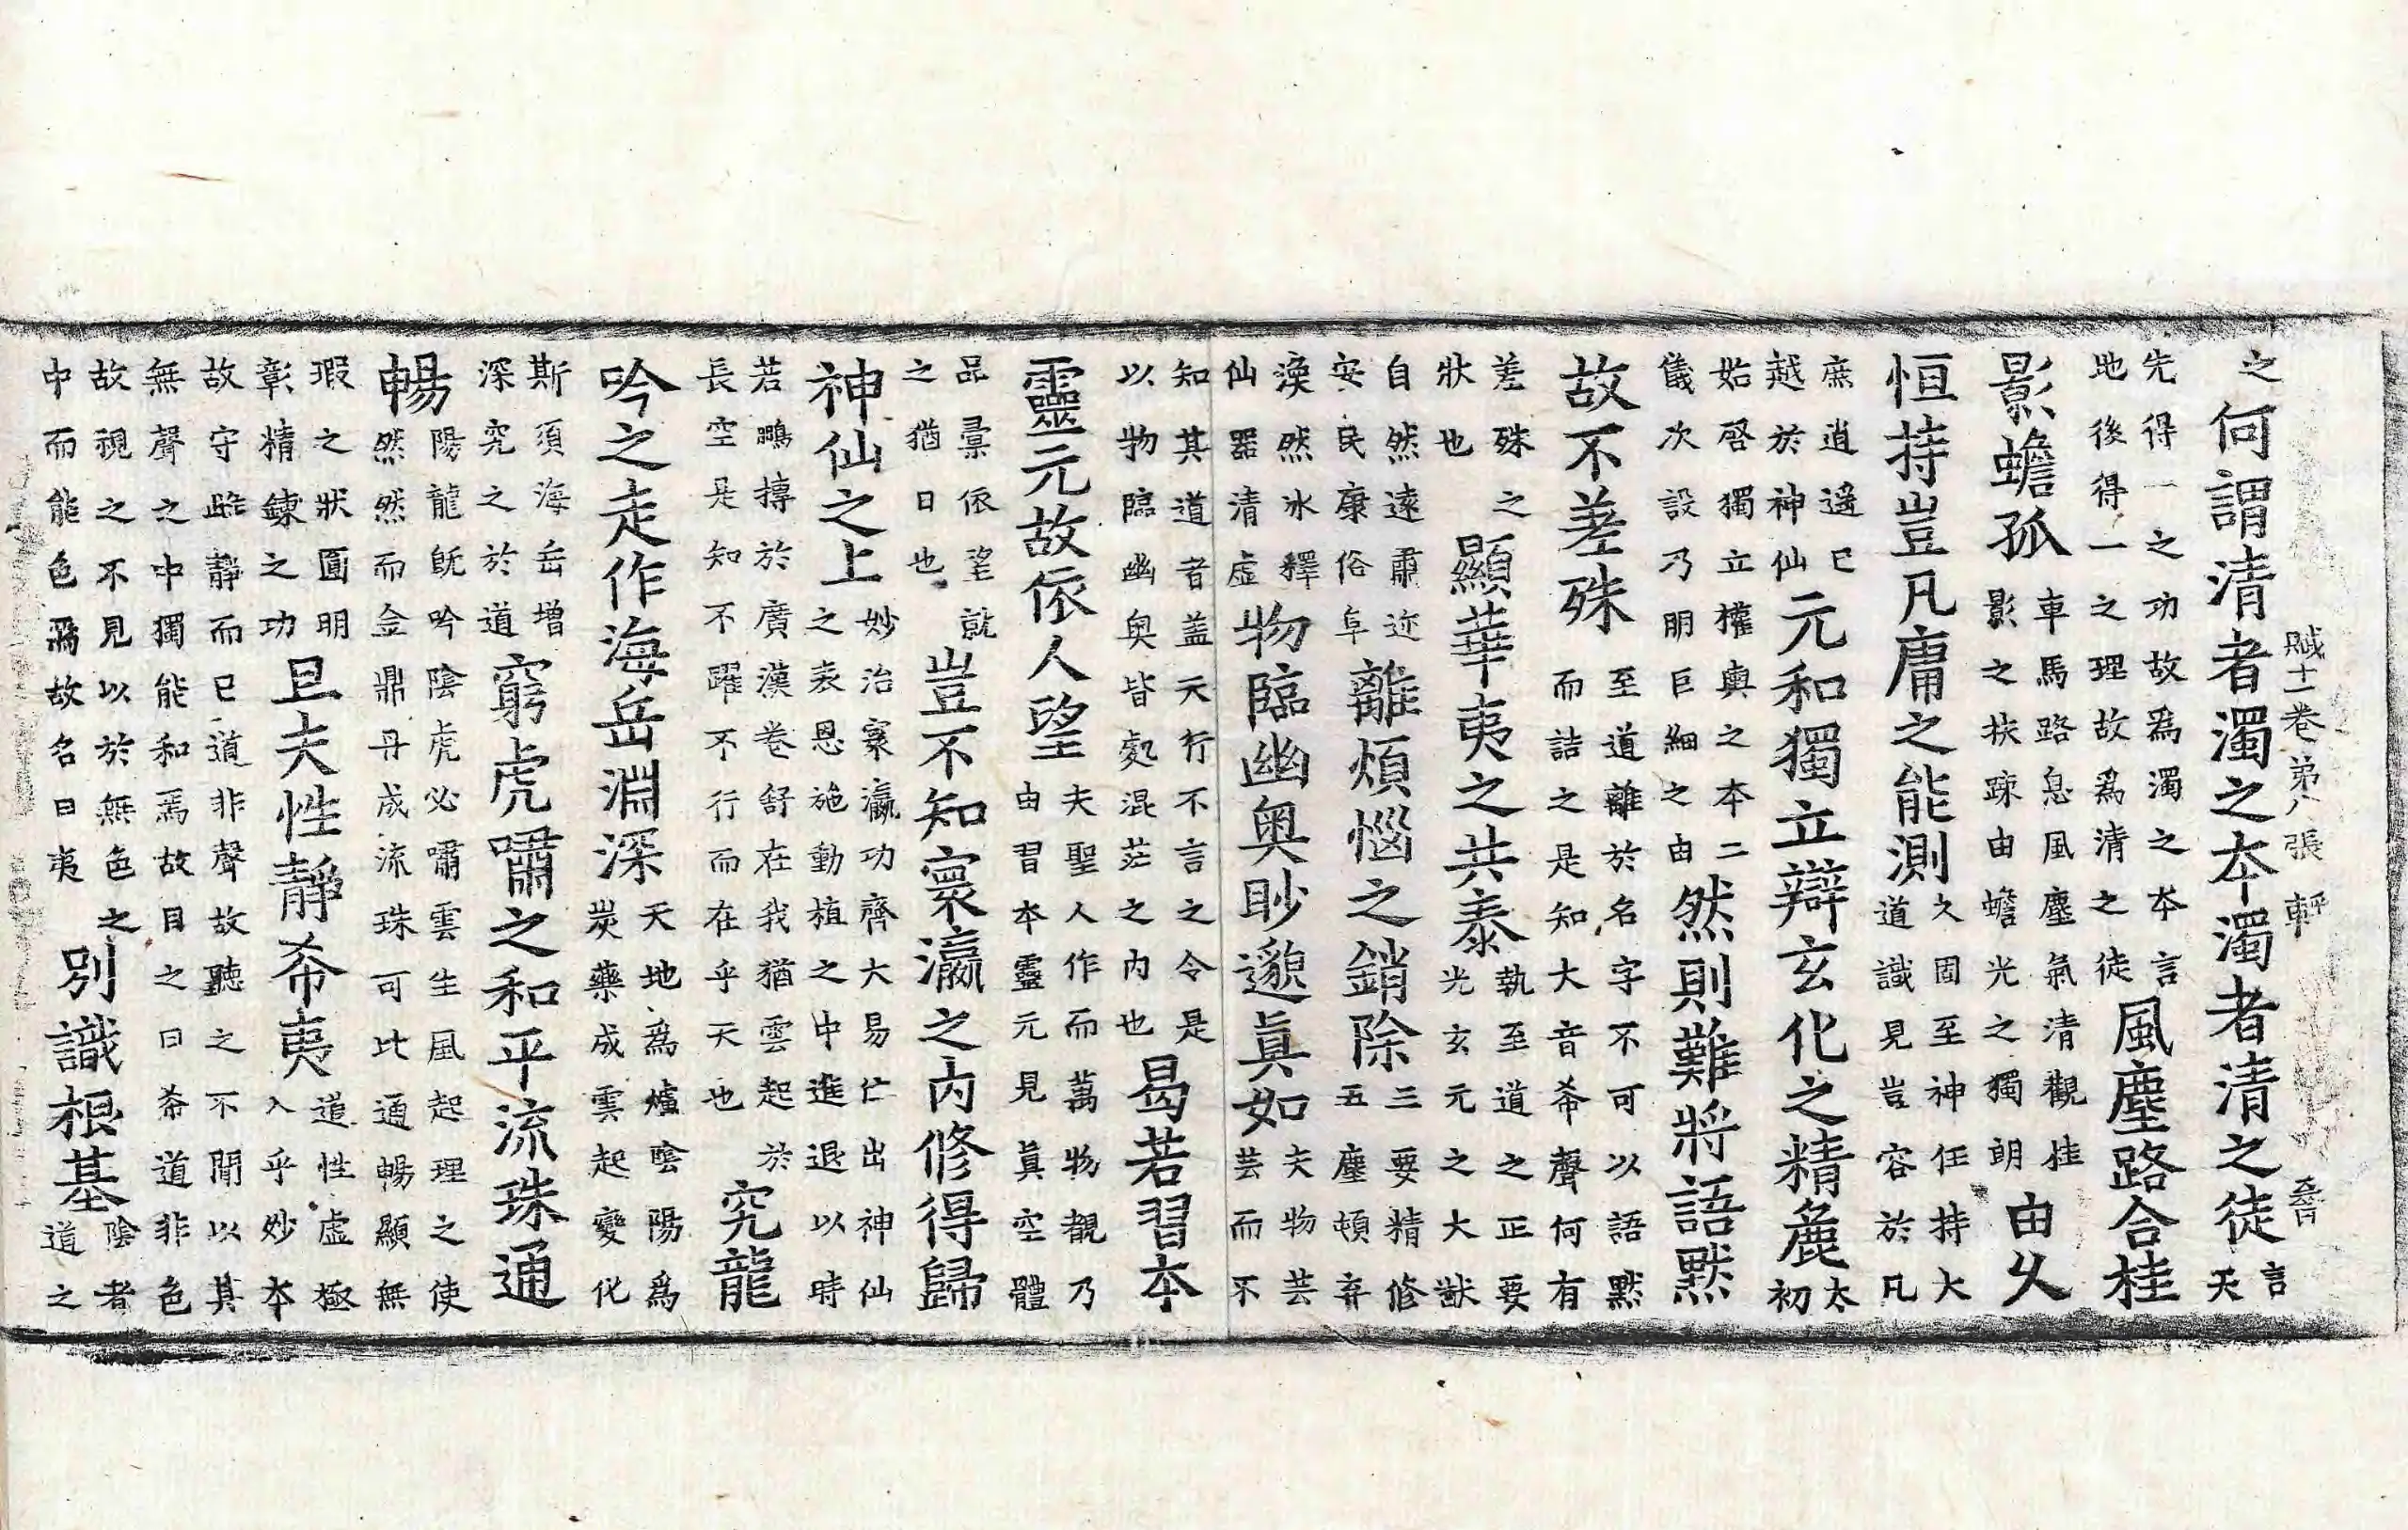 賦十一卷苐八張
之何謂清者濁之本濁者清之徒言天
先得一之功故爲濁之本言地後得一之理故爲清之徒風塵路合桂
影蟾孤車馬路息風塵氣清觀桂影之扶踈由蟾光之獨朗由乆
恒持豈凡庸之能測久固至神任持大道識見豈容於凡
庶逍遥已越於神仙元和獨立辯玄化之精麁太初
始啓獨立權輿之本二儀次設乃明巨細之由然則難將語默
故不差殊至道離於名字不可以語默而詰之是知大音希聲何有
差殊之狀也顯華夷之共泰執至道之正要光玄元之大猷
自然遠肅迩安民康俗阜離煩惱之銷除三要精修五塵頓弃
渙然氷釋仙器清虛物臨幽奥眇邈眞如夫物芸芸而不
知其道者盖天行不言之令是以物臨幽奥皆處混茫之内也曷若習本
靈元故依人望夫聖人作而萬物覩乃由習本靈元見眞空體
品彙依望就之猶日也豈不知寰瀛之内修得歸
神仙之上妙治寰瀛功齊大易亡出神仙之表恩施動植之中進退以時
若鵬摶於廣漢卷舒在我猶雲起於長空是知不躍不行而在乎天也究龍
吟之走作海岳淵深天地爲爐陰陽爲炭藥成雲起變化
斯須海岳增深究之於道窮虎嘯之和平流珠通
暢陽龍旣吟陰虎必嘯雲生風起理之使然然然而金鼎丹成流珠可比通暢顯無
瑕之狀圓明彰精鍊之功且夫性靜希夷道性虛極入乎妙本
故守此靜而已道非聲故聽之不聞以其無聲之中獨能和焉故目之曰希道非色
故視之不見以於無色之中而能色焉故名曰夷別識根基陰者道之